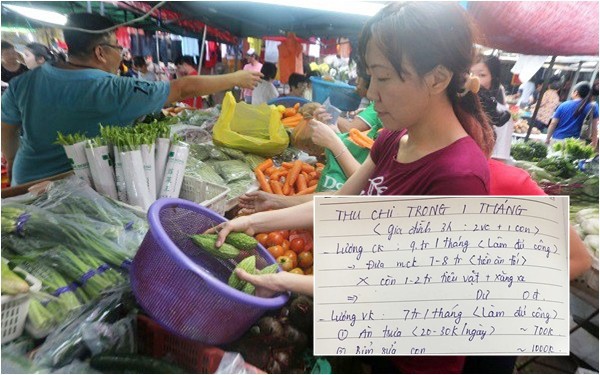 THU CHI TRONG 1 THÁNG
(gia đình 3ng : 2vc + 1 con)
- Lương ck : 9tr / tháng (Làm đủ công)
-> Đưa mck 7-8tr (tiền ăn
X còn 1-2tr tiêu vặt + xăng xe
=> Dư 0đ.
- Lương vk : 7tr / tháng (Làm đủ công)
① Ăn trưa (20-30k/ngày) ~ 700k
② Bỉm sữa con ~ 1000k